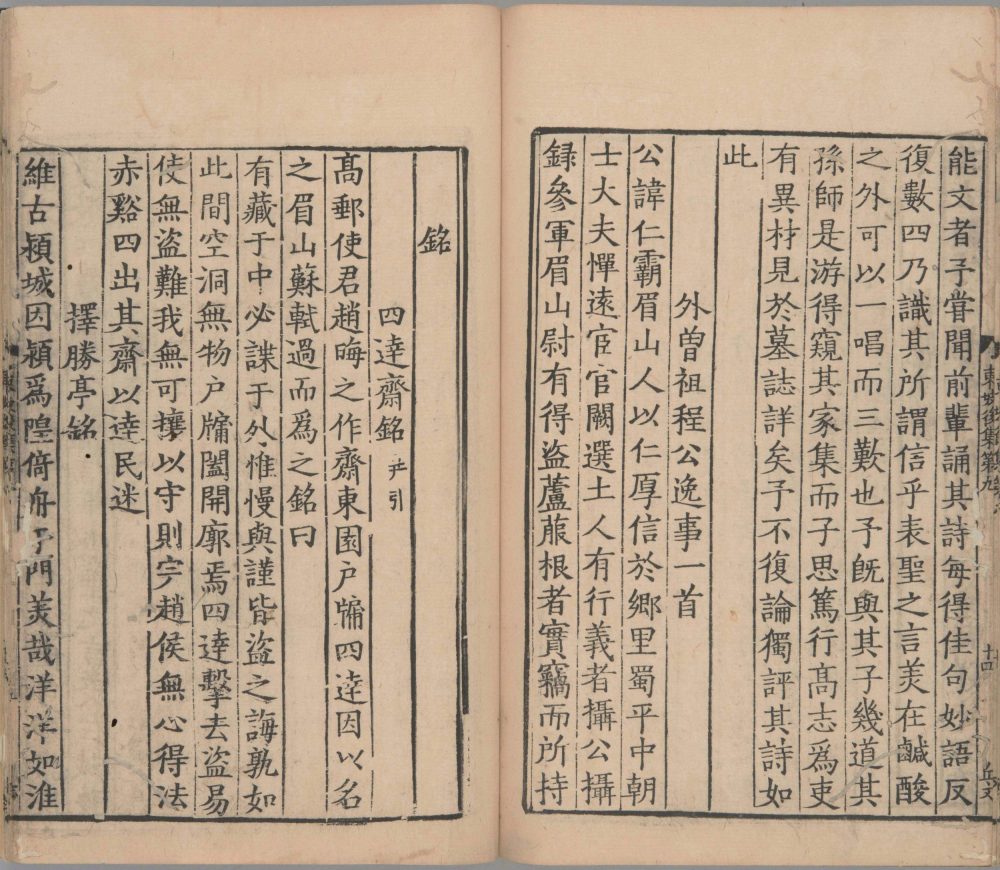 能文者予嘗聞前輩誦其詩每得佳句妙語反
復數四乃識其所謂信乎表聖之言美在鹹酸
之外可以一唱而三歎也予旣與其子幾道其
孫師是游得窺其家集而子思篤行髙志爲吏
有異材見於墓誌詳矣予不復論獨評其詩如
此
外曽祖程公逸事一首
公諱仁霸眉山人以仁厚信於鄉里蜀平中朝
士大夫憚遠官官闕選土人有行義者攝公攝
録參軍眉山尉有得盜蘆菔根者實竊而所持
東坡後集第九
十四
銘
四達齋銘 并引
髙郵使君趙晦之作齋東園户牖四達因以名
之眉山蘇軾過而爲之銘曰
有藏于中必諜于外惟慢與謹皆盜之誨孰如
此間空洞無物户牖闔開廓焉四達擊去盜易
使無盜難我無可攘以守則完趙侯無心得法
赤谿四出其齋以達民迷
擇勝亭銘
維古潁城因潁爲隍倚舟于門美哉洋洋如淮